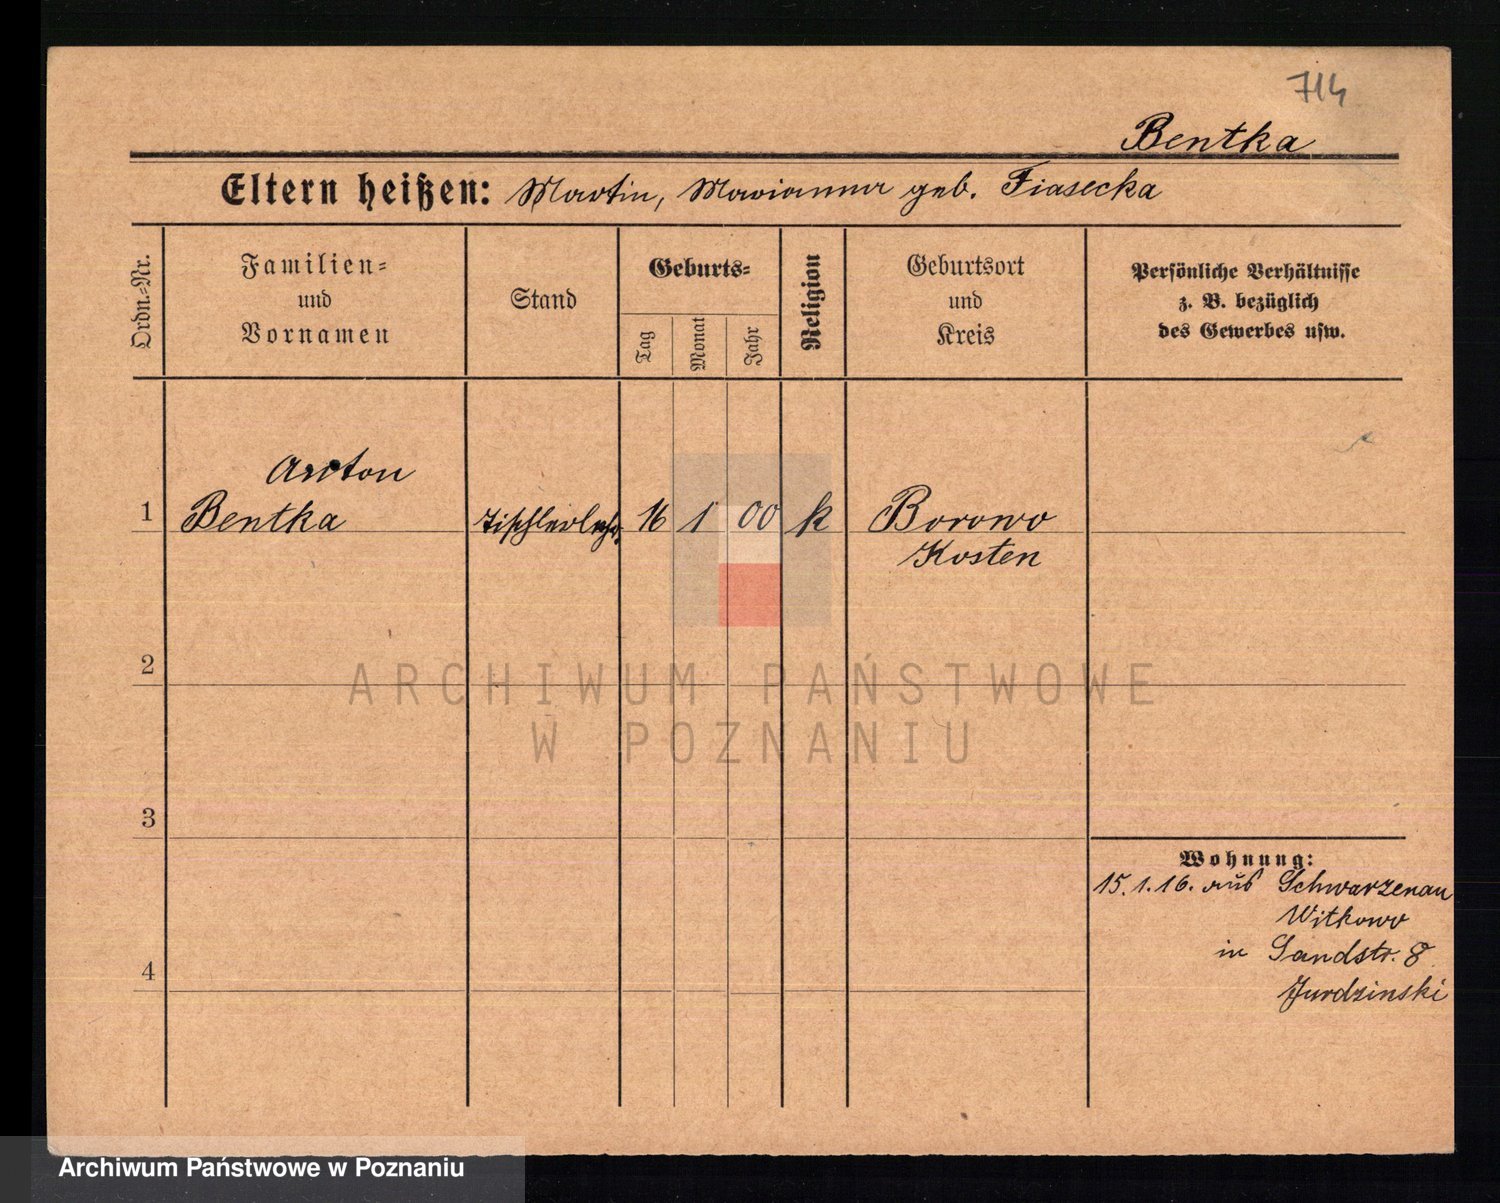 714
Bentka
Eltern heißen: Martin, Marianna geb. Fiasecka
Ordn.-Nr.
Familien-
und
Vornamen
Stand
Geburts-
Tag
Monat
Jahr
Religion
Geburtsort
und
Kreis
Persönliche Verhältnisse
z. B. bezüglich
des Gewerbes usw.
Anton
1 Bentka Tischlerlehr. 16 1 00 k Borowo
Kosten
2
ARCHIWUM PAŃSTWOWE
W POZNANIU
3
Wohnung:
15.1.16. aus Schwarzenau
Witkowo
in Sandstr. 8
4
Jurdzinski
Archiwum Państwowe w Poznaniu